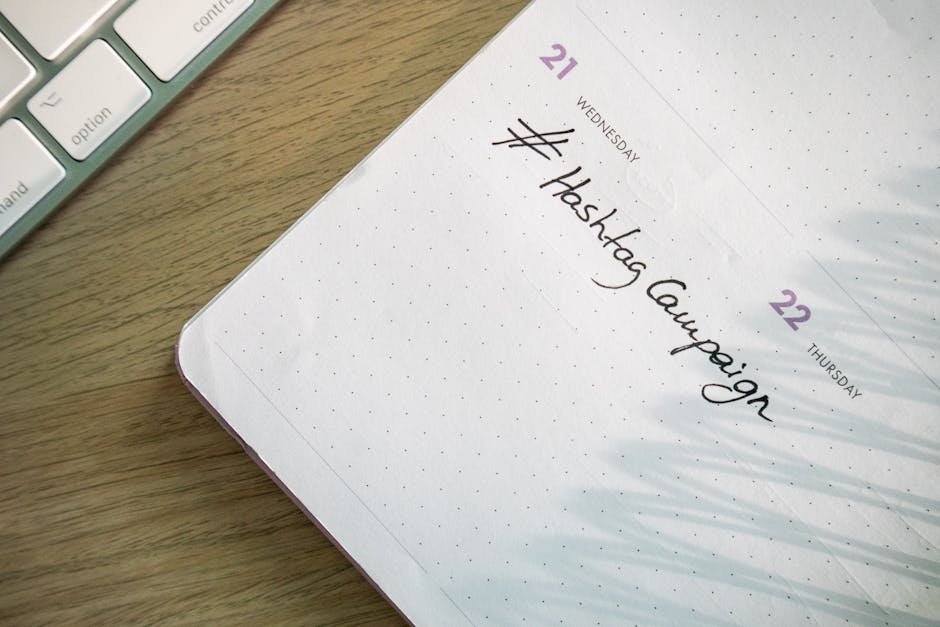 control
option
21
WEDNESDAY
# Hashtag Campaign
22
THURSDAY